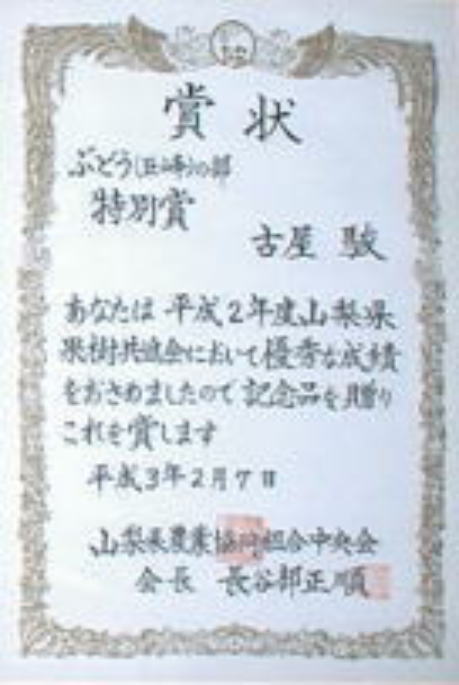 賞状
ぶどう(巨峰)の部
特別賞
古屋 駿
あなたは 平成2年度山梨県
果樹共進会において優秀な成績
をおさめましたので 記念品を贈り
これを賞します
平成3年2月7日
山梨県農業協同組合中央会
会長 長谷部正順